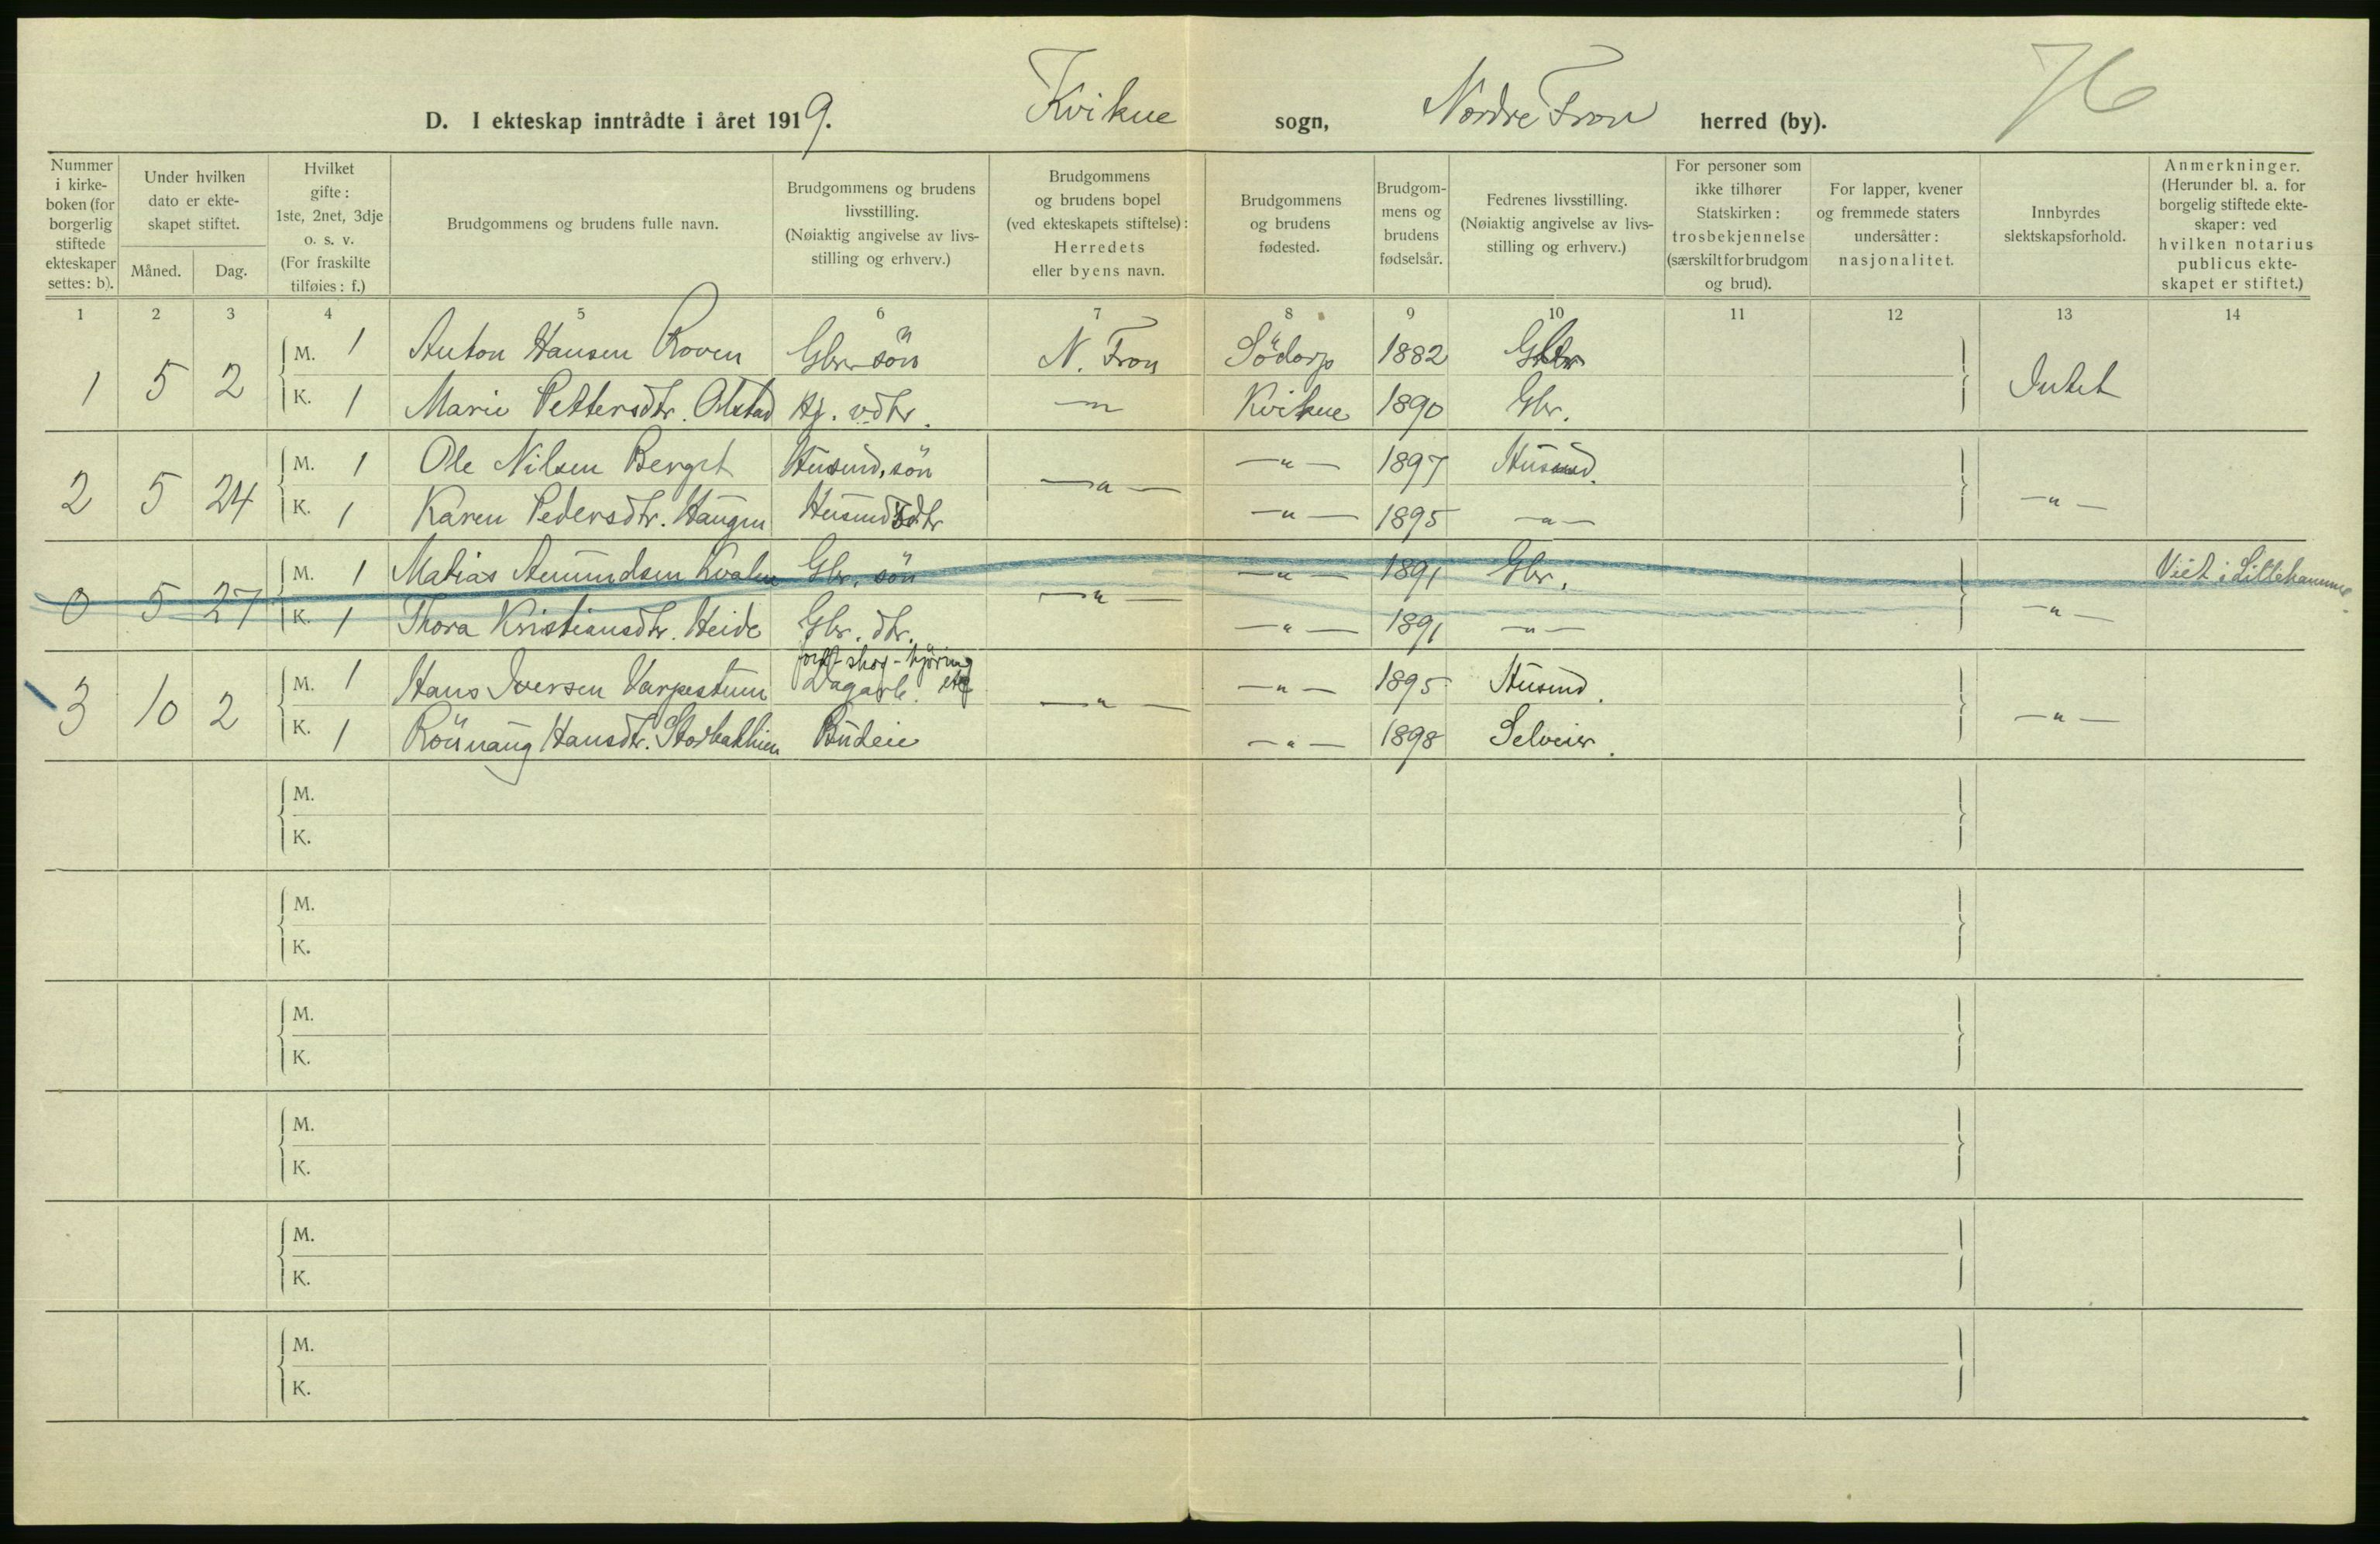 76
D. I ekteskap inntrådte i året 1919. Kvikne sogn, Nordre Fron herred (by).
Nummer i kirke-boken (for borgerlig stiftede ekteskaper settes: b).
Under hvilken dato er ekte-skapet stiftet.
Måned. Dag.
Hvilket gifte: 1ste, 2net, 3dje o. s. v. (For fraskilte tilføies: f.)
Brudgommens og brudens fulle navn.
Brudgommens og brudens livsstilling. (Nøiaktig angivelse av livs-stilling og erhverv.)
Brudgommens og brudens bopel (ved ekteskapets stiftelse): Herredets eller byens navn.
Brudgommens og brudens fødested.
Brudgom-mens og brudens fødselsår.
Fedrenes livsstilling. (Nøiaktig angivelse av livs-stilling og erhverv.)
For personer som ikke tilhører Statskirken: trosbekjennelse (særskilt for brudgom og brud).
For lapper, kvener og fremmede staters undersåtter: nasjonalitet.
Innbyrdes slektskapsforhold.
Anmerkninger. (Herunder bl. a. for borgelig stiftede ekte-skaper: ved hvilken notarius publicus ekte-skapet er stiftet.)
1 2 3 4 5 6 7 8 9 10 11 12 13 14
1 5 2 M. 1 Anton Hansen Roven Gbr. sön N. Fron Södorp 1882 Gbr. Intet
K. 1 Marie Pettersdtr. Olstad Kvikne 1890 Gbr.
2 5 24 M. 1 Ole Nilsen Berget Husmd. sön —"— —"— 1897 Husmd. —"—
K. 1 Karen Pedersdtr. Haugen Husmds dtr —"— 1895 —"—
0 5 27 M. 1 Matias Amundsen Kvalen Gbr. sön —"— —"— 1891 Gbr. —"— Viet i Lillehammer.
K. 1 Thora Kristiansdtr. Heide Gbr. dtr. —"— 1891 —"—
3 10 2 M. 1 Hans Iversen Varpestuen Dagarb. skog-kjöring etc —"— —"— 1895 Husmd. —"—
K. 1 Rönnaug Hansdtr. Storbakken Budeie —"— 1898 Selveier.
M.
K.
M.
K.
M.
K.
M.
K.
M.
K.
M.
K.